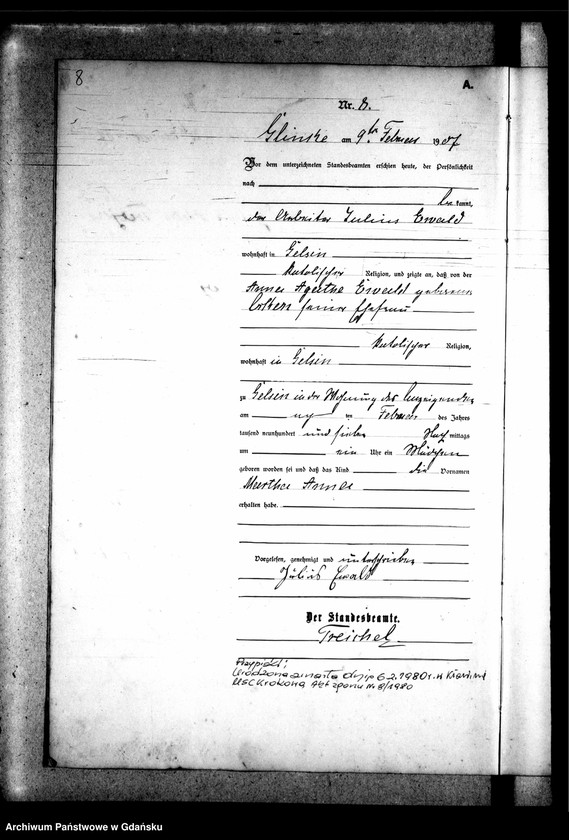 8
A.
Nr. 8.
Glinske am 9ten Februar 1907
Vor dem unterzeichneten Standesbeamten erschien heute, der Persönlichkeit
nach
be kannt,
der Arbeiter Julius Ewald
wohnhaft in Gelsin
katolischer Religion, und zeigte an, daß von der
Anna Agathe Ewald geborenen
seiner Ehefrau
katolischer Religion,
wohnhaft in Gelsin
zu Gelsin in der Wohnung des Anzeigenden
am ten Februar des Jahres
tausend neunhundert und sieben Nach mittags
um ein Uhr ein Mädchen
geboren worden sei und daß das Kind die Vornamen
Martha Anna
erhalten habe.
Vorgelesen, genehmigt und unterschrieben
Julius Ewald
Der Standesbeamte.
Treichel
Przypiski:
Urodzona zmarła dnia 6.2.1980r. w
USC Krokowa Akt zgonu Nr 8/1980
Archiwum Państwowe w Gdańsku